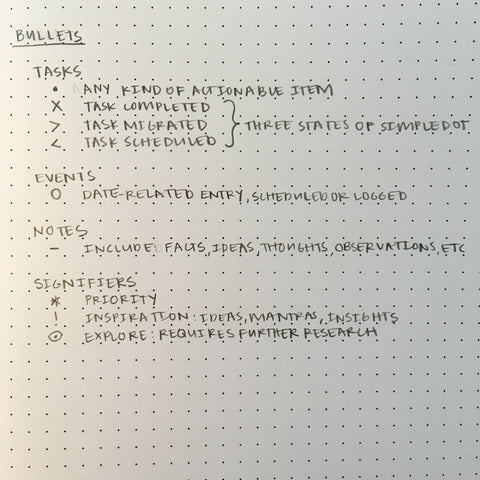 BULLETS
TASKS
• ANY KIND OF ACTIONABLE ITEM
X TASK COMPLETED
> TASK MIGRATED } THREE STATES OF SIMPLE DOT
< TASK SCHEDULED
EVENTS
O DATE-RELATED ENTRY, SCHEDULED OR LOGGED
NOTES
– INCLUDE: FACTS, IDEAS, THOUGHTS, OBSERVATIONS, ETC
SIGNIFIERS
* PRIORITY
! INSPIRATION: IDEAS, MANTRAS, INSIGHTS
⊙ EXPLORE: REQUIRES FURTHER RESEARCH